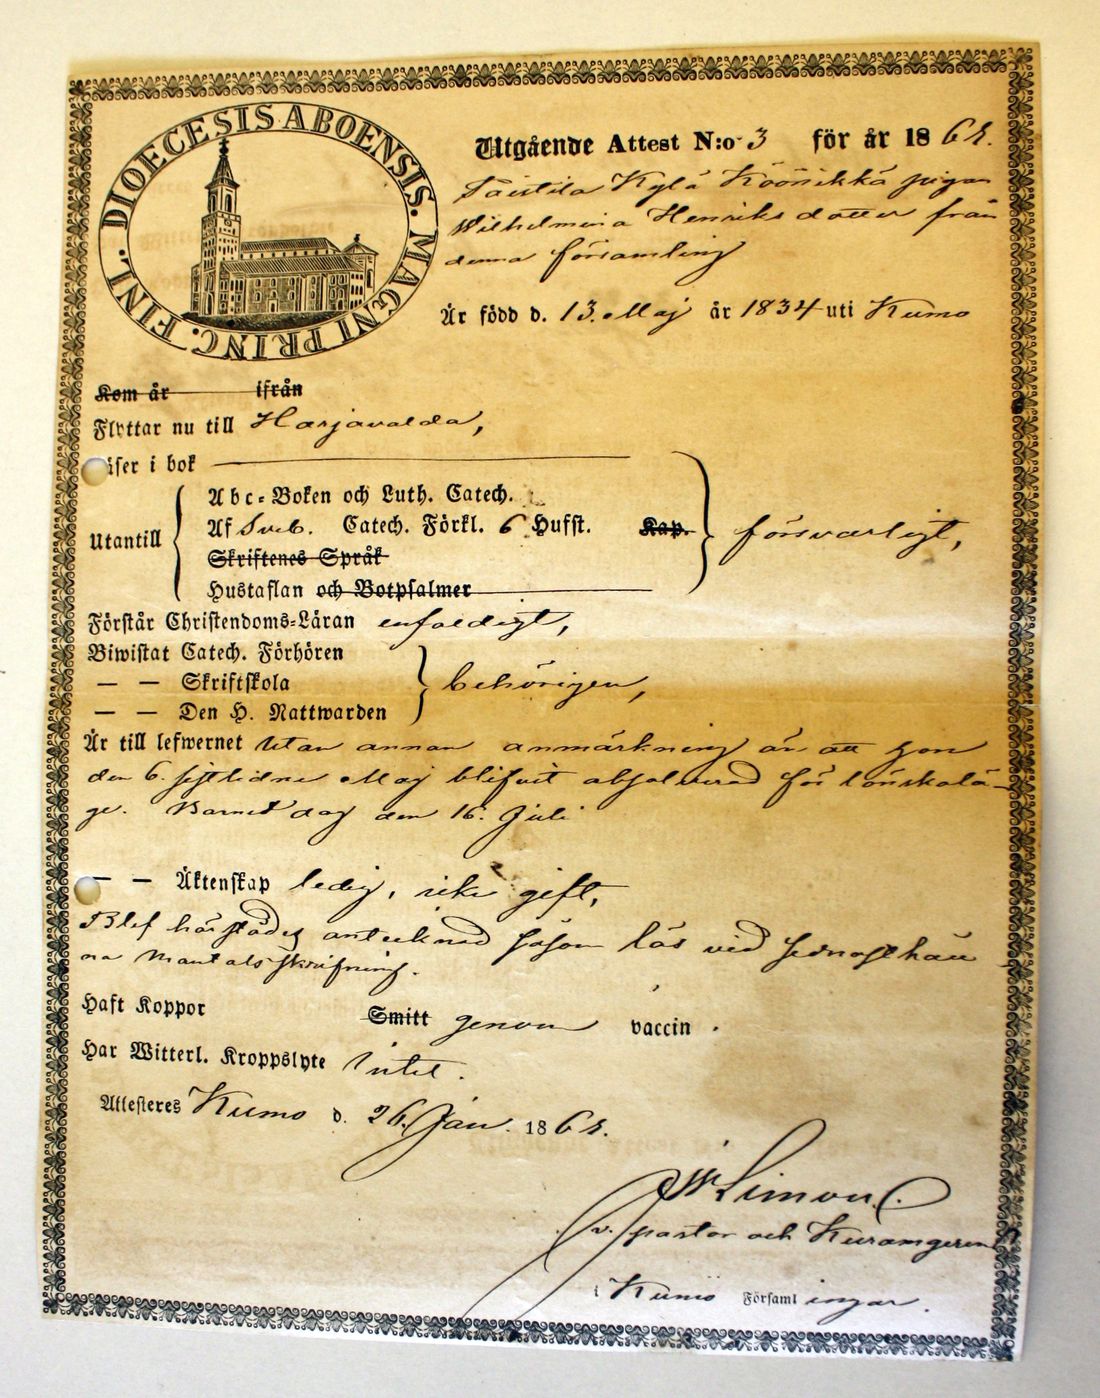 DIOECESIS ABOENSIS. MAGNI PRINC. FINL.
Utgående Attest N:o 3 för år 18
Kylä pigan
Wilhelmina Henriksdotter från
denna församling
Är född d. 13. Maj år 1834 uti Kumo
Kom år ifrån
Flyttar nu till Harjavalda,
äser i bok
Utantill
Abc-Boken och Luth. Catech.
Af Sveb. Catech. Förkl. 6 Hufst. Kap.
Skriftenes Språk
Hustaflan och Botpsalmer
försvarligt,
Förstår Christendoms-Läran enfaldigt,
Biwistat Catech. Förhören
— — Skriftskola
— — Den H. Nattwarden
behörigen,
Är till lefwernet utan annan anmärkning än att hon
den 6. sistlidne Maj blifvit absolverad för lönskalä-
ge. Barnet dag den 16. Juli
— — Äktenskap ledig, icke gift,
Blef härstädes antecknad såsom lös vid
na Mantalsskrifning.
Haft Koppor Smitt genom vaccin.
Har Witterl. Kroppslyte Intet.
Attesteres Kumo d. 26. Jan. 18
v. pastor och
i Kumo Församl ingar.